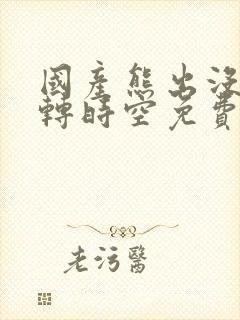 國產熊出沒
轉時空免費
老污醫